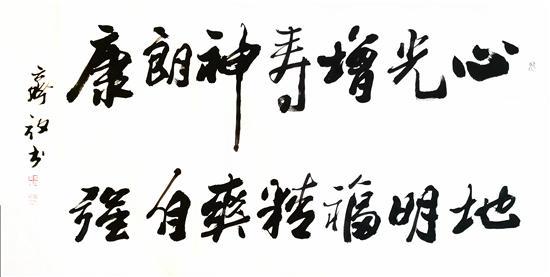 心地
光明
增福
寿精
神爽
朗自
康强